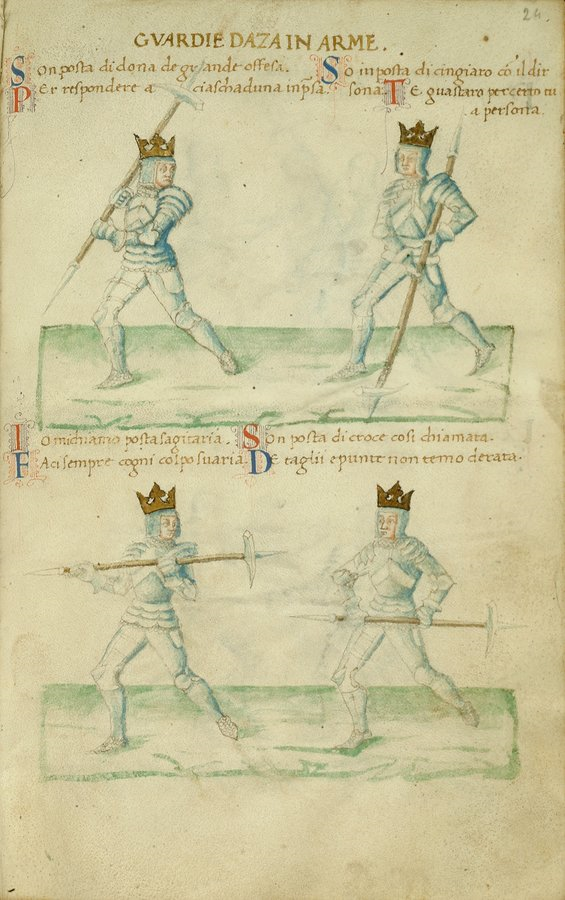 24.
GVARDIE DAZA IN ARME.
Son posta di dona de grande offesa.
Per respondere a ciaschaduna inp̃sa.
So in posta di cingiaro cõ il dir
sona. Te guastaro per certo tu
a persona.
Io mi chiamo posta sagitaria.
Faci sempre cogni colpo suaria.
Son posta di croce cosi chiamata.
De taglii e punte non temo derata.